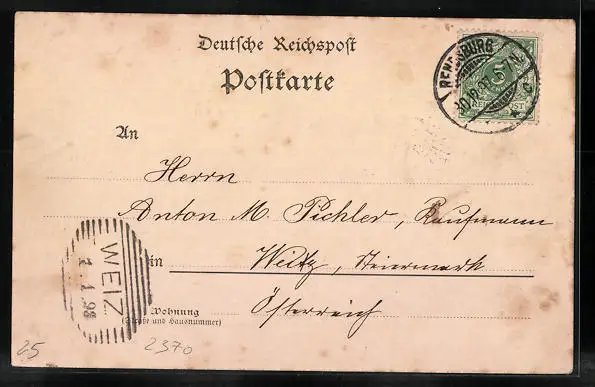 Deutsche Reichspost
Postkarte
RENDSBURG
5
REICHSPOST
An
Herrn
Anton M. Pichler, Kaufmann
in Weitz, Steiermark
Österreich
Wohnung
(Straße und Hausnummer)
WEIZ
1 1.98
25
2370